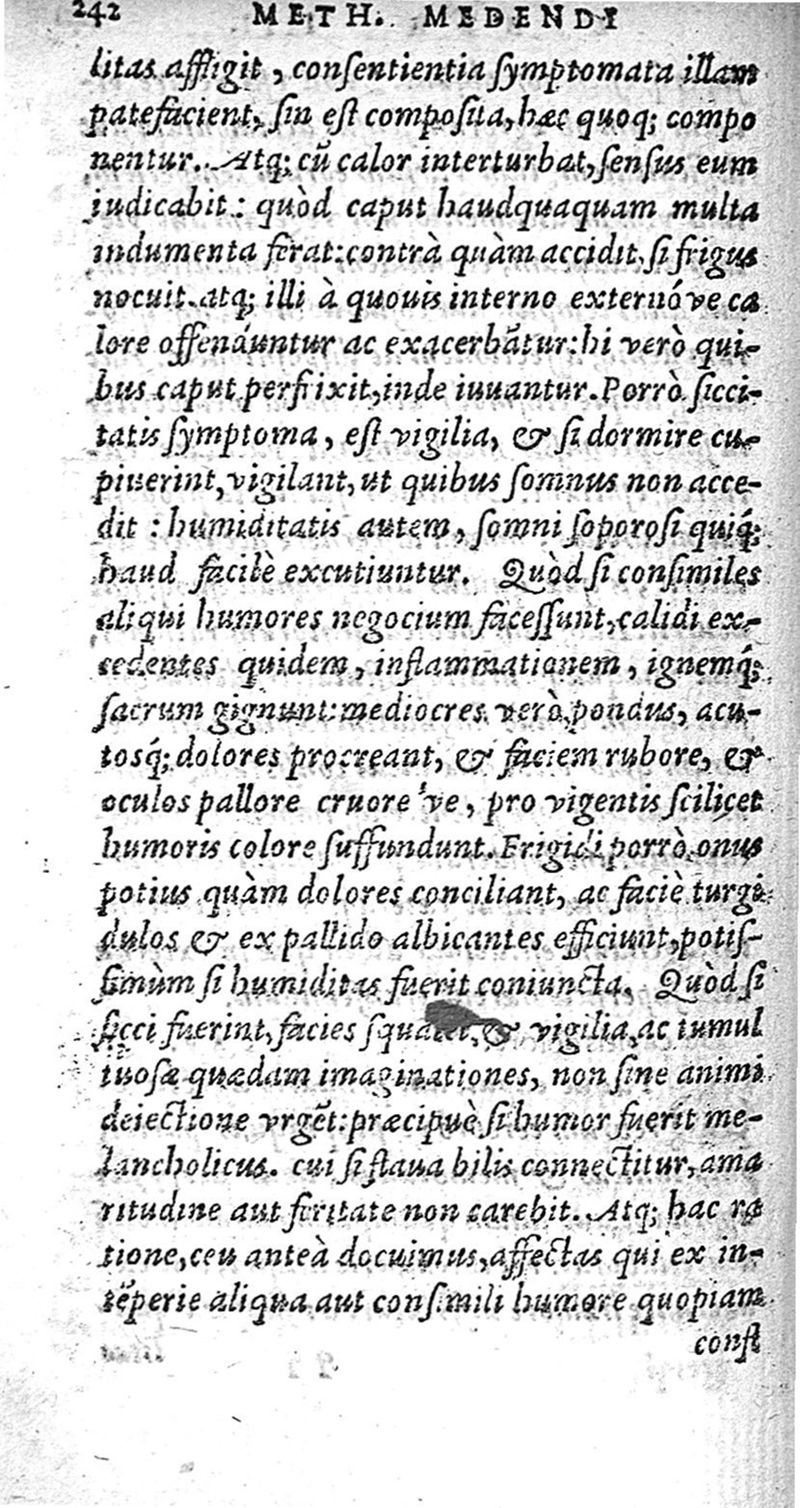 242 METH. MEDENDI
litas affligit, conſentientia ſymptomata illam
patefacient, ſin eſt compoſita, hæc quoq; compo
nentur. Atq; cũ calor interturbat, ſenſus eum
iudicabit: quòd caput haudquaquam multa
indumenta ferat: contrà quàm accidit, ſi frigus
nocuit. atq; illi à quouis interno externóve ca
lore offenduntur ac exacerbãtur: hi verò qui-
bus caput perfrixit, inde iuuantur. Porrò ſicci-
tatis ſymptoma, eſt vigilia, & ſi dormire cu-
piuerint, vigilant, ut quibus ſomnus non acce-
dit: humiditatis autem, ſomni ſoporoſi quiq́;
haud facilè excutiuntur. Quòd ſi conſimiles
aliqui humores negocium faceſſunt, calidi ex-
cedentes quidem, inflammationem, ignemq́;
ſacrum gignunt: mediocres verò, pondus, acu-
tosq́; dolores procreant, & faciem rubore, &
oculos pallore cruore've, pro vigentis ſcilicet
humoris colore ſuffundunt. Frigidi porrò, onus
potius quàm dolores conciliant, ac faciē turgi
dulos & ex pallido albicantes efficiunt, potiſ-
ſimùm ſi humiditas fuerit coniuncta. Quòd ſi
ſicci fuerint, facies ſqualet, & vigilia, ac tumul
tuoſæ quædam imaginationes, non ſine animi
deiectione vrgẽt: præcipuè ſi humor fuerit me-
lancholicus. cui ſi flaua bilis connectitur, ama
ritudine aut feritate non carebit. Atq; hac ra
tione, ceu anteà docuimus, affectas qui ex in-
tẽperie aliqua aut conſimili humore quopiam
conſt